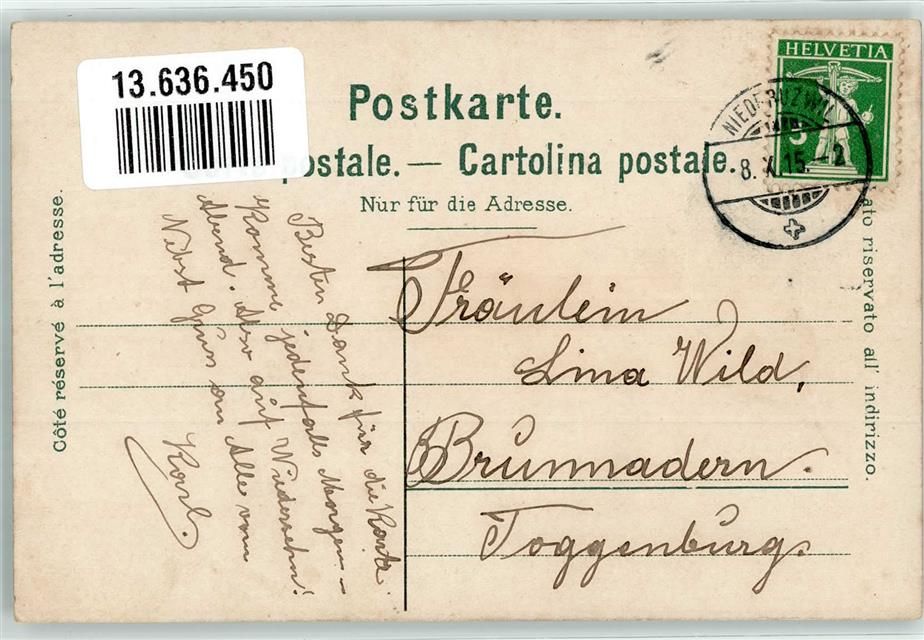 13.636.450
HELVETIA
5
NIEDERUZWIL
8. X. 15. - 2
Postkarte.
postale. — Cartolina postale.
Nur für die Adresse.
Côté réservé à l'adresse.
ato riservato all' indirizzo.
Besten Dank für die Karte.
Komme jedenfalls Morgen-
Abend. Also auf Wiedersehn!
Nebst Gruss an Alle vom
Karl.
Fräulein
Lina Wild,
Brunnadern.
Toggenburg.